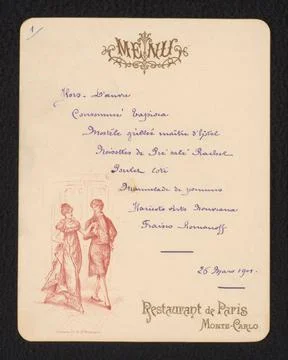 1
MENU
Hors-d'œuvre
Consommé Tapioca
Mostèle grillée maître d'hôtel
Noisettes de Pré salé Rachel
Poulet rôti
Marmelade de pommes
Haricots verts Nouveaux
Fraises Romanoff
26 Mars 1901.
Restaurant de Paris
MONTE-CARLO